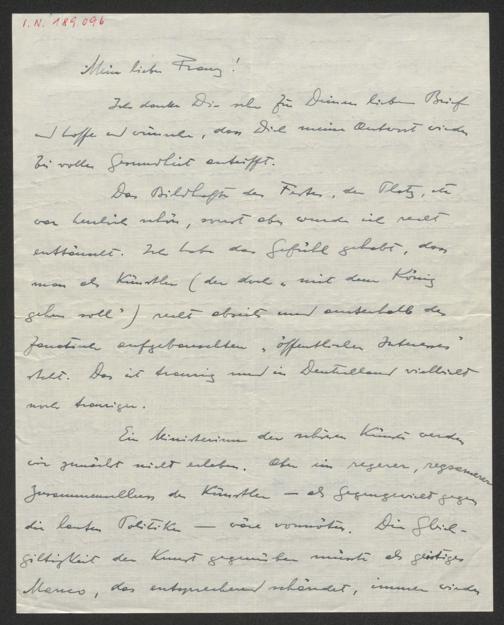 I.N. 189.096
Mein lieber Franz!
Ich danke Dir sehr für Deinen lieben Brief
und hoffe und wünsche, dass Dich meine Antwort wieder
bei voller Gesundheit antrifft.
Das Bildhafte des Festes, der Platz, etc
war herrlich schön, sonst aber wurde ich recht
enttäuscht. Ich habe das Gefühl gehabt, dass
man als Künstler (der doch „mit dem König
gehen soll") recht abseits und ausserhalb des
fanatisch aufgebauschten „öffentlichen Interesses"
steht. Das ist traurig und in Deutschland vielleicht
noch trauriger.
Ein Ministerium der schönen Künste werden
wir zunächst nicht erleben. Aber ein regerer, regsamerer
Zusammenschluss der Künstler — als Gegengewicht gegen
die lauten Politiker — wäre vonnöten. Die Gleich-
giltigkeit der Kunst gegenüber müsste als geistiges
Manco, das entsprechend schändet, immer wieder